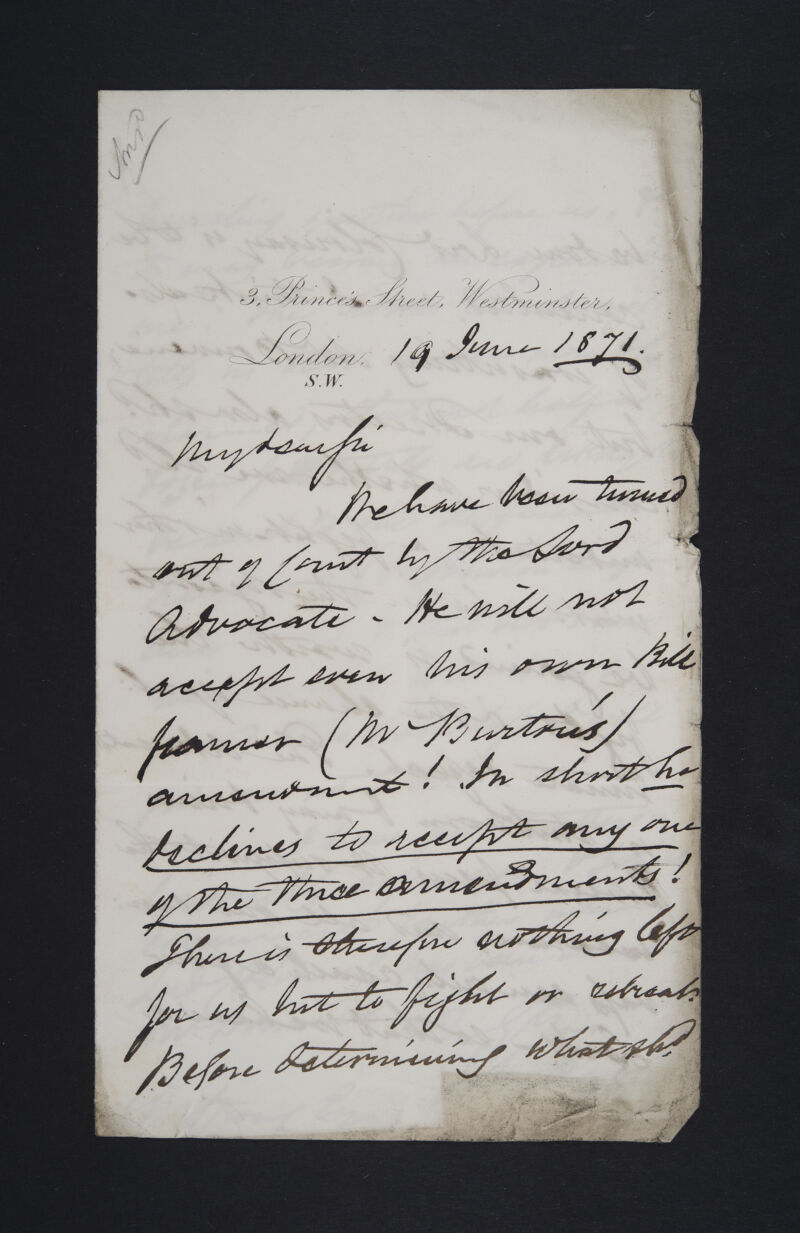 3, Prince's Street, Westminster,
London. 19 June 1871.
S.W.
My dear Sir
We have been turned
out of Court by the Lord
Advocate - He will not
accept even his own Bill
framer (Mr Burton's)
amendment! In short he
declines to accept any one
of the three amendments!
There is therefore nothing left
for us but to fight or retreat.
Before determining what shd